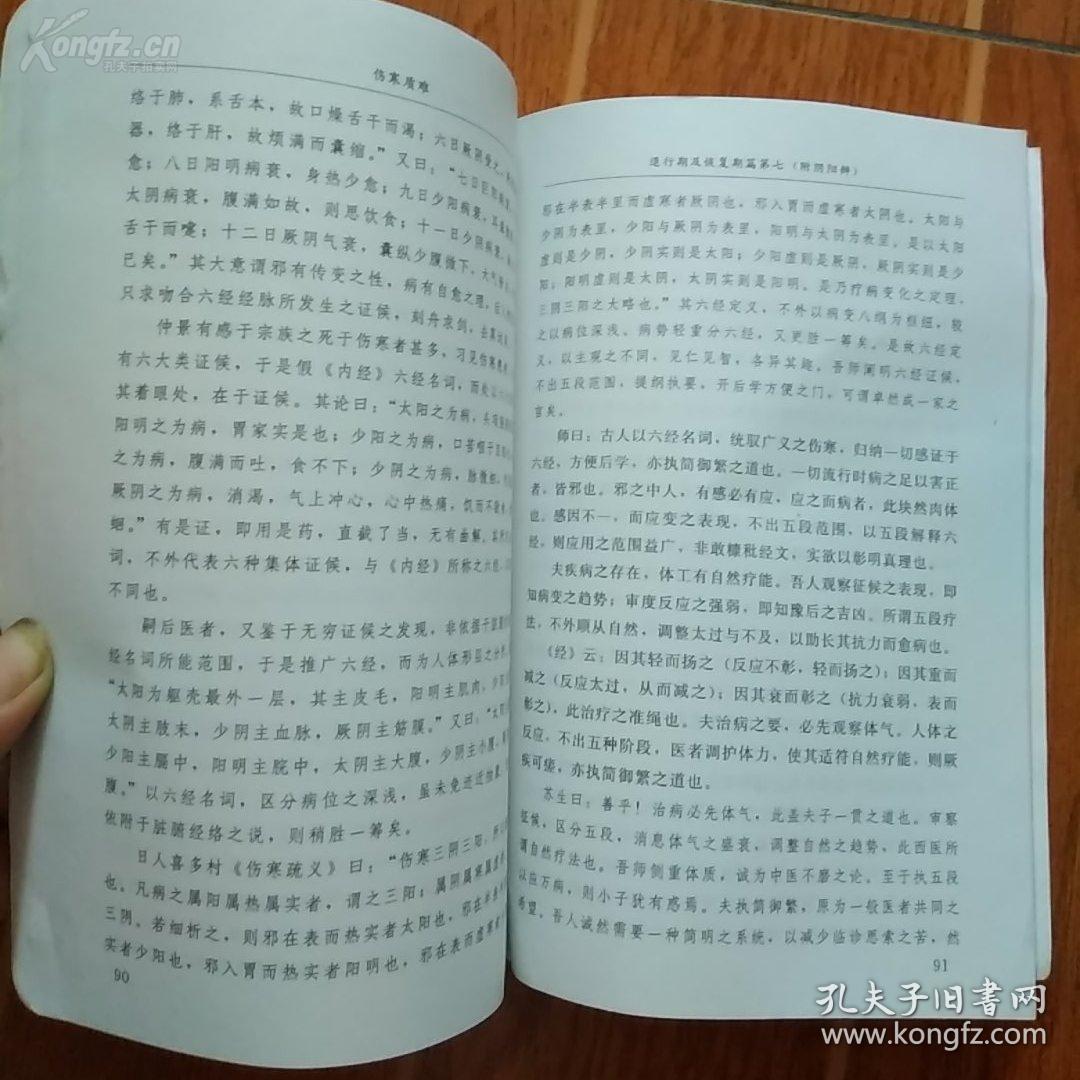 Kongfz.cn
孔夫子拍卖网
伤寒质难
络于肺，系舌本，故口燥舌干而渴；六日厥阴受之
器，络于肝，故烦满而囊缩。”又曰：“七日巨阳病衰
愈；八日阳明病衰，身热少愈；九日少阳病衰，耳聋
太阴病衰，腹满如故，则思饮食；十一日少阴病衰
舌干而嚏；十二日厥阴气衰，囊纵少腹微下，大气
已矣。”其大意谓邪有传变之性，病有自愈之理，后人
只求吻合六经经脉所发生之证候，刻舟求剑，去真
仲景有感于宗族之死于伤寒者甚多，习见伤寒
有六大类证候，于是假《内经》六经名词，而处以
其着眼处，在于证候。其论曰：“太阳之为病，头项强
阳明之为病，胃家实是也；少阳之为病，口苦咽干
之为病，腹满而吐，食不下；少阴之为病，脉微细
厥阴之为病，消渴，气上冲心，心中热痛，饥而不欲
蛔。”有是证，即用是药，直截了当，无有曲解。其
词，不外代表六种集体证候，与《内经》所称之六经
不同也。
嗣后医者，又鉴于无穷证候之发现，非依据于
经名词所能范围，于是推广六经，而为人体形层之分
“太阳为躯壳最外一层，其主皮毛，阳明主肌肉，少阳
太阴主肢末，少阴主血脉，厥阴主筋膜。”又曰：“太阳
少阳主膈中，阳明主脘中，太阴主大腹，少阴主小腹
腹。”以六经名词，区分病位之深浅，虽未免迹近抽象
依附于脏腑经络之说，则稍胜一筹矣。
日人喜多村《伤寒疏义》曰：“伤寒三阴三阳，所
也。凡病之属阳属热属实者，谓之三阳；属阴属寒属虚
三阴。若细析之，则邪在表而热实者太阳也，邪在半表半
实者少阳也，邪入胃而热实者阳明也，邪在表而虚寒
90
退行期及恢复期篇第七（附阴阳辨）
邪在半表半里而虚寒者厥阴也。邪入胃而虚寒者太阴也。太阳与
少阴为表里，少阳与厥阴为表里，阳明与太阴为表里。是以太阳
虚则是少阴，少阴实则是太阳；少阳虚则是厥阴，厥阴实则是少
阳；阳明虚则是太阴，太阴实则是阳明。是乃疗病变化之定理，
三阴三阳之大略也。”其六经定义，不外以病变八纲为枢纽，较
之以病位深浅、病势轻重分六经，又更胜一筹矣。是故六经定
义，以主观之不同，见仁见智，各异其趣。吾师阐明六经证候，
不出五段范围，提纲执要，开后学方便之门，可谓卓然成一家之
言矣。
师曰：古人以六经名词，统驭广义之伤寒，归纳一切感证于
六经，方便后学，亦执简御繁之道也。一切流行时病之足以害正
者，皆邪也。邪之中人，有感必有应，应之而病者，此块然肉体
也。感因不一，而应变之表现，不出五段范围，以五段解释六
经，则应用之范围益广，非敢糠秕经文，实欲以彰明真理也。
夫疾病之存在，体工有自然疗能。吾人观察征候之表现，即
知病变之趋势；审度反应之强弱，即知豫后之吉凶。所谓五段疗
法，不外顺从自然，调整太过与不及，以助长其抗力而愈病也。
《经》云：因其轻而扬之（反应不彰，轻而扬之）；因其重而
减之（反应太过，从而减之）；因其衰而彰之（抗力衰弱，表而
彰之），此治疗之准绳也。夫治病之要，必先观察体气。人体之
反应，不出五种阶段，医者调护体力，使其适符自然疗能，则厥
疾可瘳，亦执简御繁之道也。
苏生曰：善乎！治病必先体气，此盖夫子一贯之道也。审察
征候，区分五段，消息体气之盛衰，调整自然之趋势，此西医所
谓自然疗法也。吾师侧重体质，诚为中医不磨之论。至于执五段
以应万病，则小子犹有惑焉。夫执简御繁，原为一般医者共同之
希望，吾人诚然需要一种简明之系统，以减少临诊思索之苦，然
91
孔夫子旧书网
www.kongfz.com